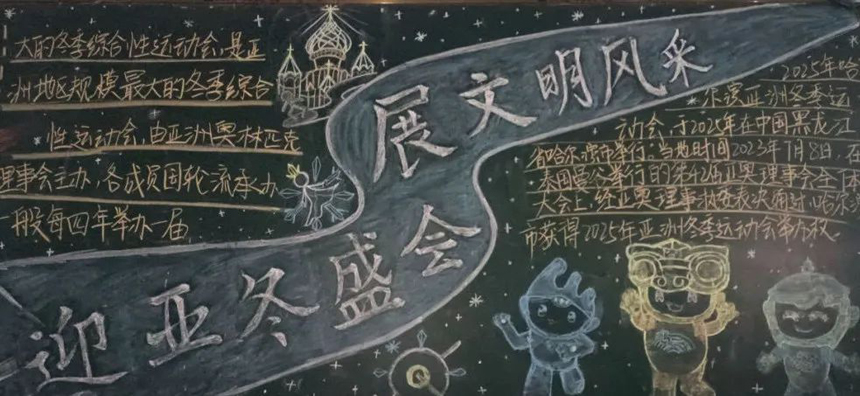 展文明风采
迎亚冬盛会
大的冬季综合性运动会,是亚
洲地区规模最大的冬季综合
性运动会,由亚洲奥林匹克
理事会主办,各成员国轮流承办,
一般每四年举办一届
2025年哈
尔滨亚洲冬季运
动会,于2025年在中国黑龙江
省哈尔滨市举行.当地时间2023年7月8日,在
泰国曼谷举行的第42届亚奥理事会全体
大会上,经亚奥理事
市获得2025年亚洲冬季运动会举办权.